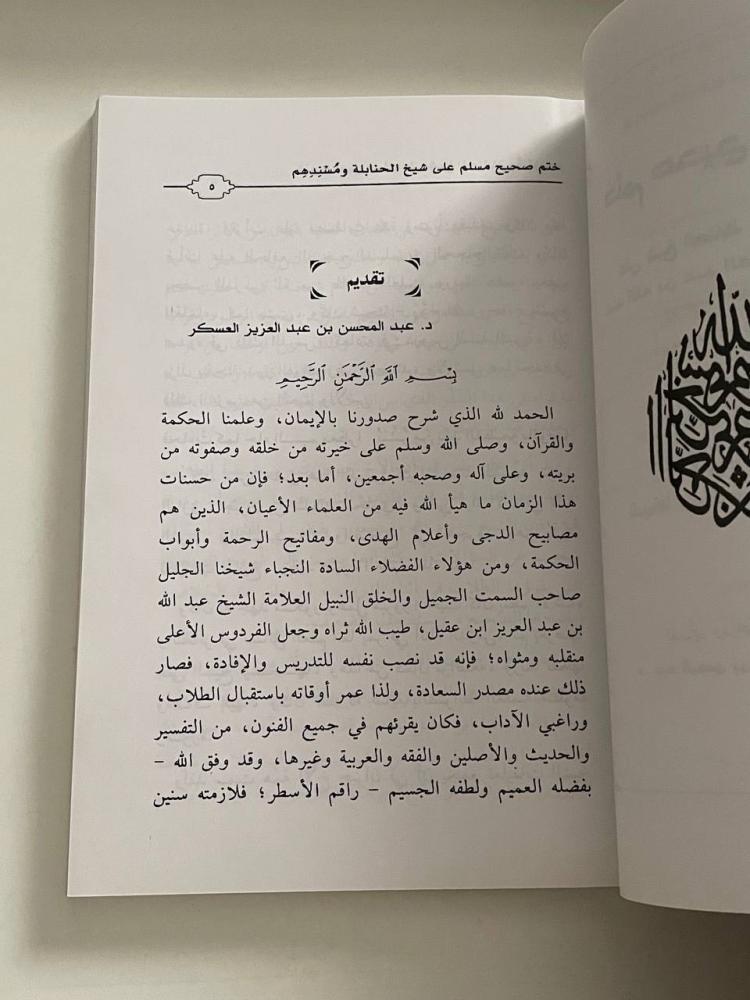 ختم صحيح مسلم على شيخ الحنابلة ومُسْنِدِهِم
٥
تقديم
د. عبد المحسن بن عبد العزيز العسكر
بِسْمِ ٱللَّهِ ٱلرَّحْمَٰنِ ٱلرَّحِيمِ
الحمد لله الذي شرح صدورنا بالإيمان، وعلمنا الحكمة
والقرآن، وصلى الله وسلم على خيرته من خلقه وصفوته من
بريته، وعلى آله وصحبه أجمعين، أما بعد؛ فإن من حسنات
هذا الزمان ما هيأ الله فيه من العلماء الأعيان، الذين هم
مصابيح الدجى وأعلام الهدى، ومفاتيح الرحمة وأبواب
الحكمة، ومن هؤلاء الفضلاء السادة النجباء شيخنا الجليل
صاحب السمت الجميل والخلق النبيل العلامة الشيخ عبد الله
بن عبد العزيز ابن عقيل، طيب الله ثراه وجعل الفردوس الأعلى
منقلبه ومثواه؛ فإنه قد نصب نفسه للتدريس والإفادة، فصار
ذلك عنده مصدر السعادة، ولذا عمر أوقاته باستقبال الطلاب،
وراغبي الآداب، فكان يقرئهم في جميع الفنون، من التفسير
والحديث والأصلين والفقه والعربية وغيرها، وقد وفق الله –
بفضله العميم ولطفه الجسيم – راقم الأسطر؛ فلازمته سنين